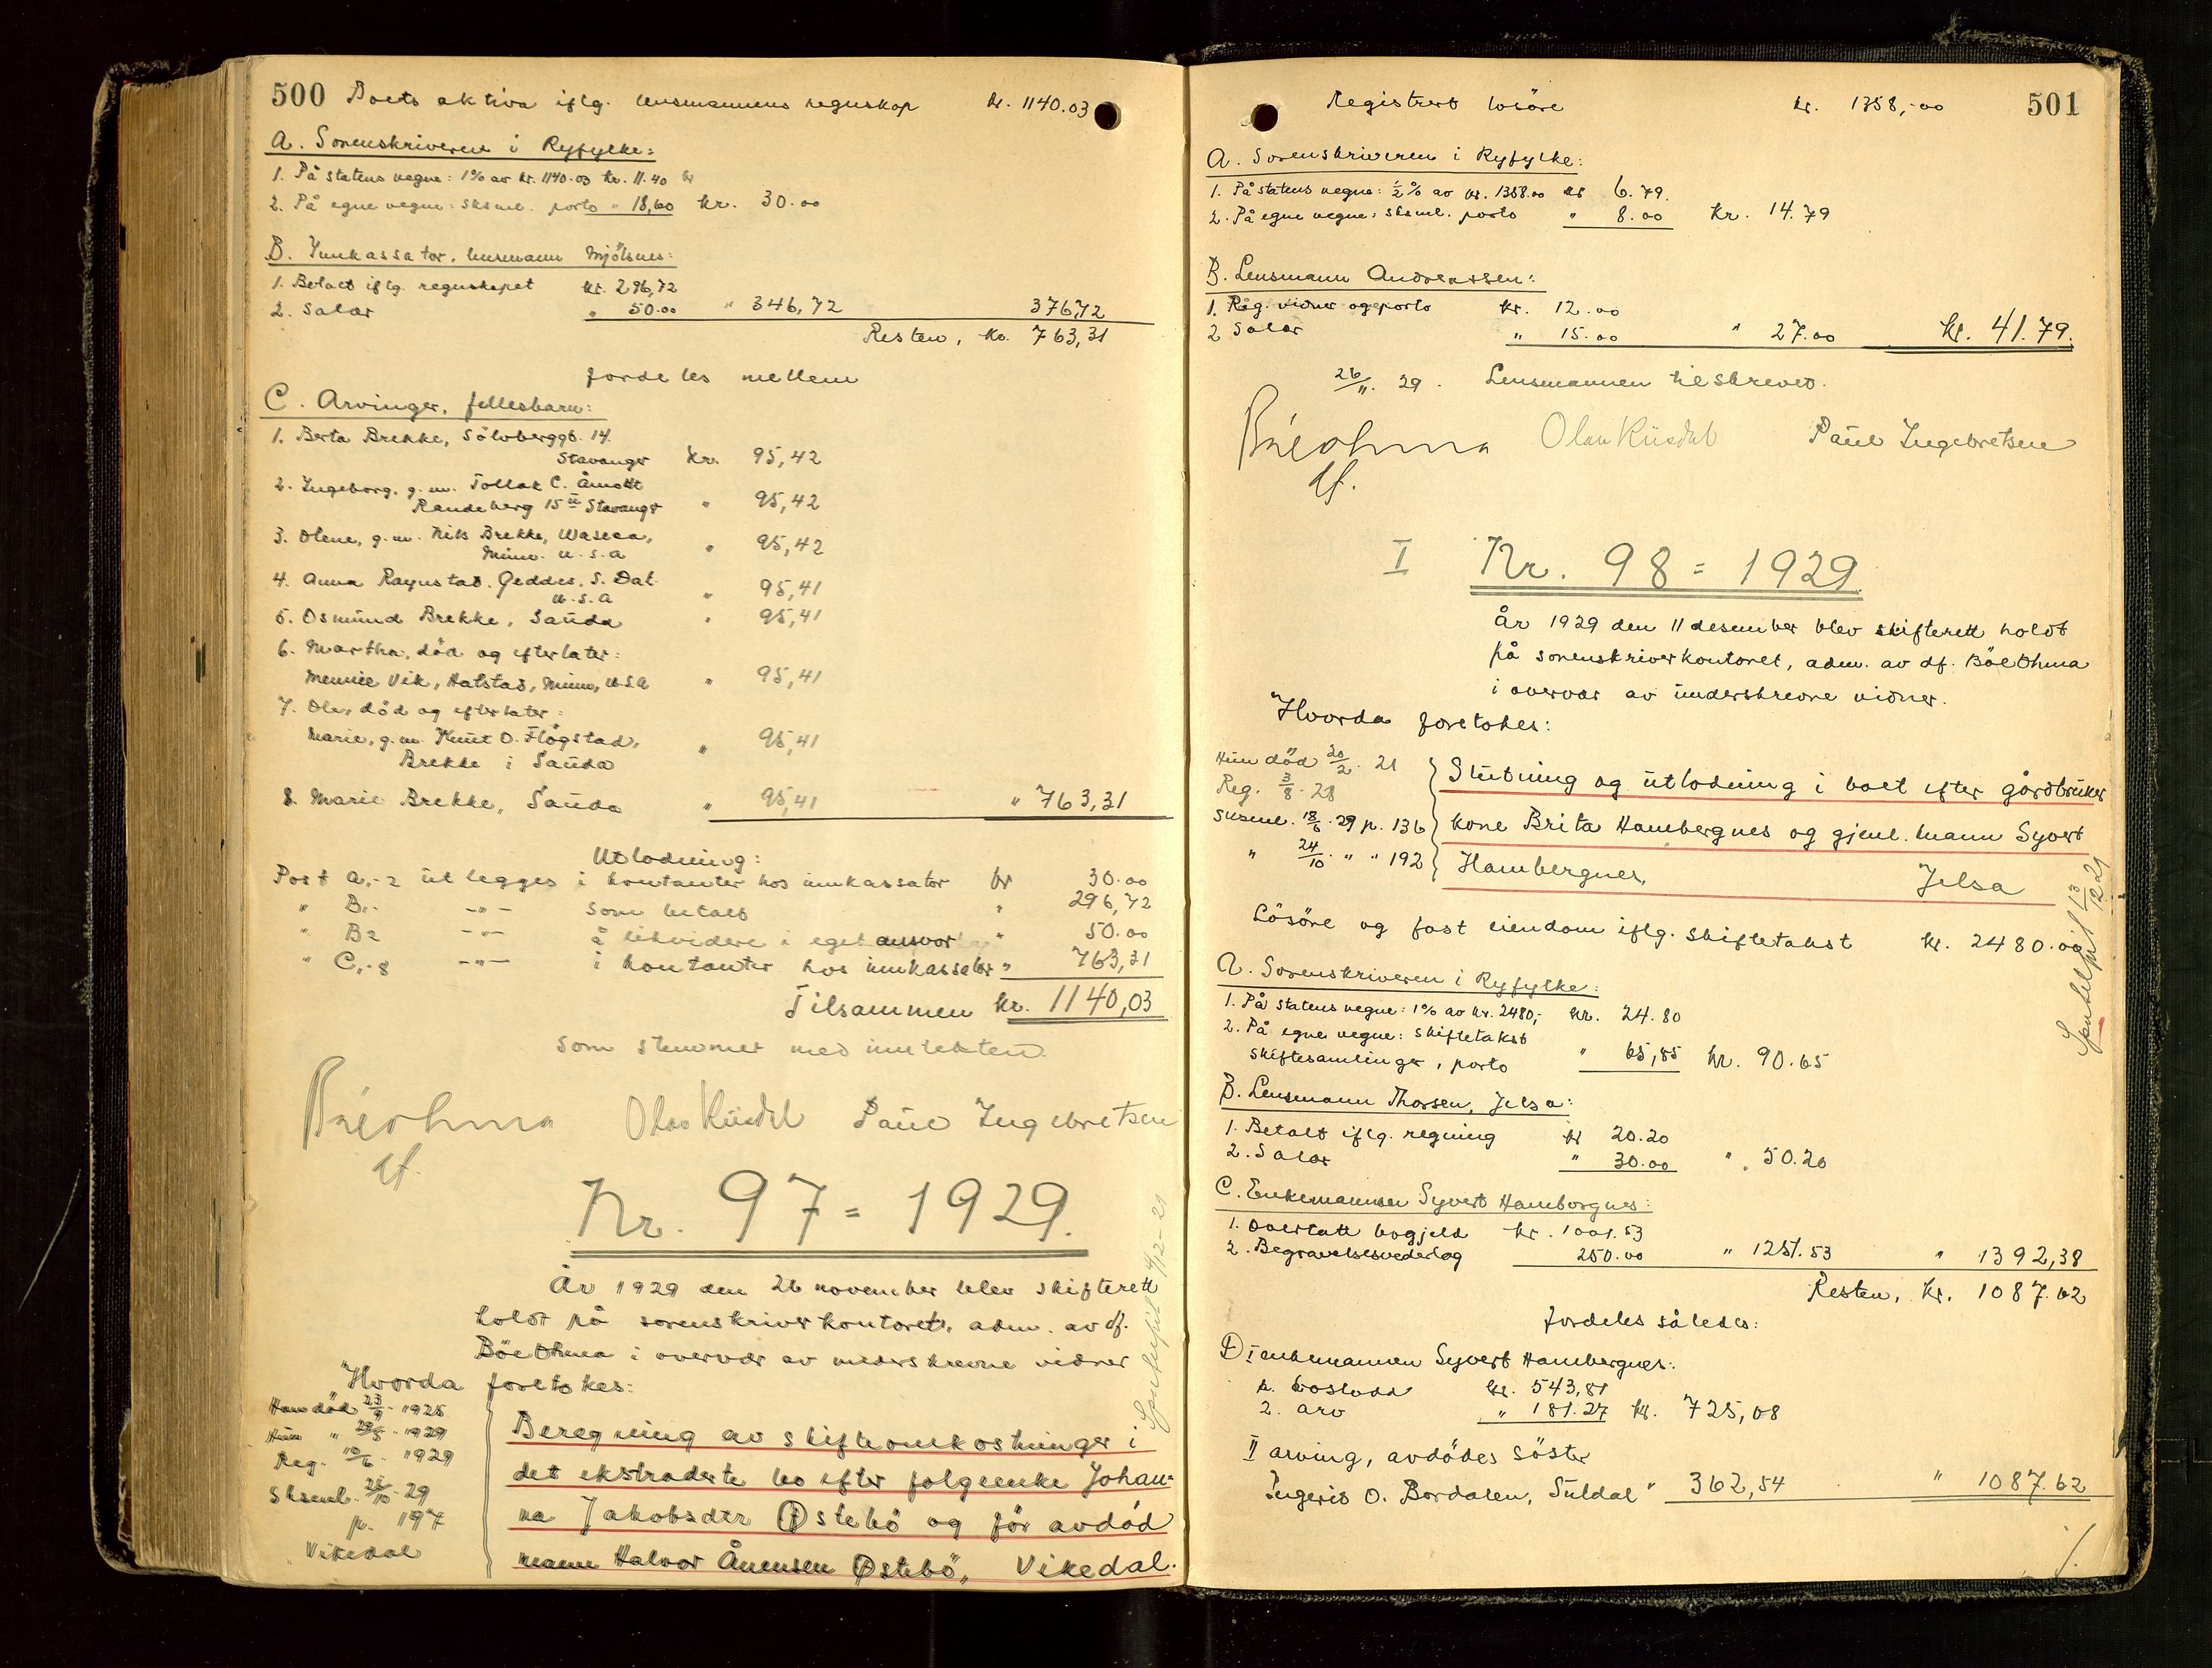 500 Boets aktiva iflg. lensmannens regnskap kr. 1140.03
A. Sorenskriveren i Ryfylke:
1. På statens vegne: 1% av kr. 1140.03 kr. 11.40
2. På egne vegne: sksml. porto " 18,60 kr. 30.00
B. Innkassator, lensmann Mjölsnes:
1. Betalt iflg. regnskapet kr. 296,72
2. Salær " 50.00 " 346,72 376,72
Resten, kr. 763,31
fordeles mellem
C. Arvinger, fellesbarn:
1. Berta Brekke, Sölvberggt. 14
Stavanger kr. 95,42
2. Ingeborg, g.m. Tollak C. Åmodt
Randeberg 15 II Stavanger " 95,42
3. Olene, g.m. Nils Brekke, Waseca,
Minn. U.S.A " 95,42
4. Anna Røynstad, Geddes, S. Dak
U.S.A " 95,41
5. Osmund Brekke, Sauda " 95,41
6. Martha, död og efterlater:
Mennie Vik, Halstad, Minn, U.S.A " 95,41
7. Ole, död og efterlater:
Marie, g.m. Knut O. Flögstad,
Brekke i Sauda " 95,41
8. Marie Brekke, Sauda " 95,41 " 763,31
Utlodning:
Post A1-2 utlegges i kontanter hos innkassator kr 30.00
" B1- -"- som betalt " 296,72
" B2 -"- å likvidere i eget ansvar " 50.00
" C1-8 -"- i kontanter hos innkassator " 763,31
Tilsammen kr. 1140,03
som stemmer med inntekten.
Böeohma Olav Kusdal Paul Ingebretsen
df.
Nr. 97 = 1929.
År 1929 den 26 november blev skifterett
holdt på sorenskriverkontoret, adm. av df.
Böethma i overvær av underskrevne vidner
Hvorda foretokes:
Han död 23/9 - 1925
Hun " 29/5 - 1929
Reg. 10/6 - 1929
Sksml. 25/10 - 29
p. 197
Vikedal
Beregning av skifteomkostninger i
det ekstraderte bo efter følgeenke Johan-
na Jakobsdtr Østebö og för avdöd
mann Halvor Ånensen Østebö, Vikedal.
Registrert lösöre kr. 1358,-00 501
A. Sorenskriveren i Ryfylke:
1. På statens vegne: 1/2 % av kr. 1358.00 kr 6.79.
2. På egne vegne: sksml. porto " 8.00 kr. 14.79
B. Lensmann Andreassen:
1. Reg. vidner og porto kr. 12.00
2 Salær " 15.00 " 27.00 kr. 41.79.
26/11. 29. Lensmannen tilskrevet.
Böeohma Olav Kusdal Paul Ingebretsen
df.
I Nr. 98 = 1929.
År 1929 den 11 desember blev skifterett holdt
på sorenskriverkontoret, adm. av df. Böethma
i overvær av underskrevne vidner.
Hvorda foretokes:
Hun död 20/2. 21
Reg. 3/8. 28
Sksml. 18/6. 29 p. 136
" 24/10. " " 192
Slutning og utlodning i boet efter gårdbruker
kone Brita Hambergnes og gjenl. mann Syvert
Hambergnes, Jelsa
Lösöre og fast eiendom iflg. skiftetakst kr. 2480.00
A. Sorenskriveren i Ryfylke:
1. På statens vegne: 1% av kr. 2480,- kr. 24.80
2. På egne vegne: skiftetakst
skiftesamlinger, porto " 65,85 kr. 90.65
B. Lensmann Thorsen, Jelsa:
1. Betalt iflg. regning kr 20.20
2. Salær " 30.00 " 50.20
C. Enkemannen Syvert Hambergnes:
1. Overtatt bogjeld kr. 1001.53
2. Begravelsesvederlag 250.00 " 1251.53 " 1392,38
Resten, kr. 1087.62
fordeles således:
D I enkemannen Syvert Hambergnes:
1. boslodd kr. 543,81
2. arv " 181.27 kr. 725,08
II arving, avdödes söster
Ingerid O. Bordalen, Suldal " 362,54 " 1087.62